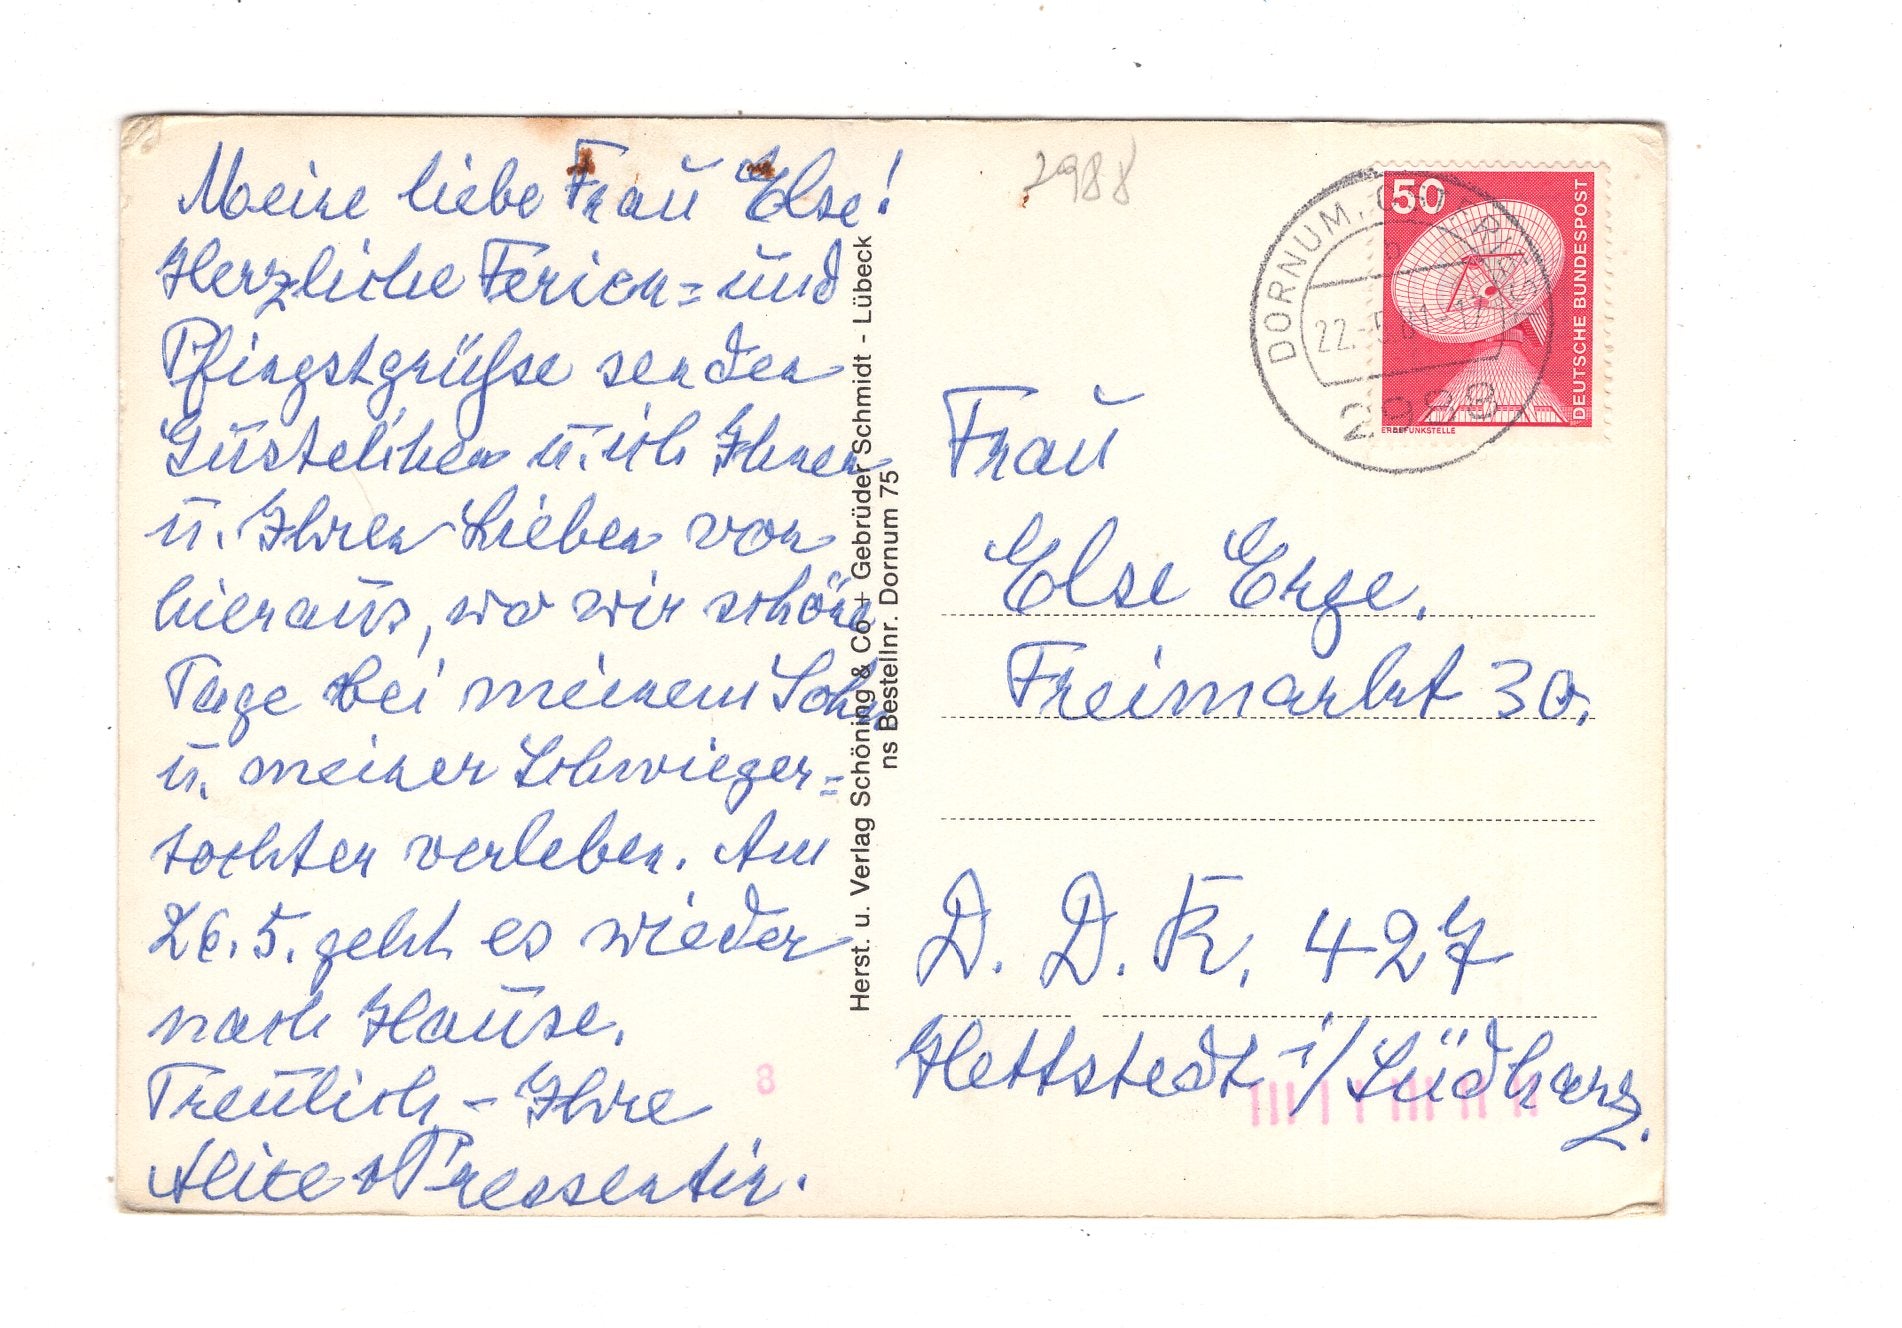 Meine liebe Frau Else!
Herzliche Ferien= und
Pfingstgrüße senden
Gustelchen u. ich Ihnen
u. Ihren Lieben von
hieraus, wo wir schöne
Tage bei meinem Sohn
u. meiner Schwieger=
tochter verleben. Am
26.5. geht es wieder
nach Hause.
Treulich - Ihre
Alice v Pressentin.
8
Herst. u. Verlag Schöning & Co + Gebrüder Schmidt - Lübeck
ns Bestellnr. Dornum 75
2988
DORNUM,
22.-5.81-17
2988
50
DEUTSCHE BUNDESPOST
ERDEFUNKSTELLE
Frau
Else Erge.
Freimarkt 30.
D. D. R. 427
Hettstedt i/Südharz.